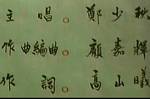 主唱 鄭少秋
作曲編曲 顧嘉煇
作詞 高山曦